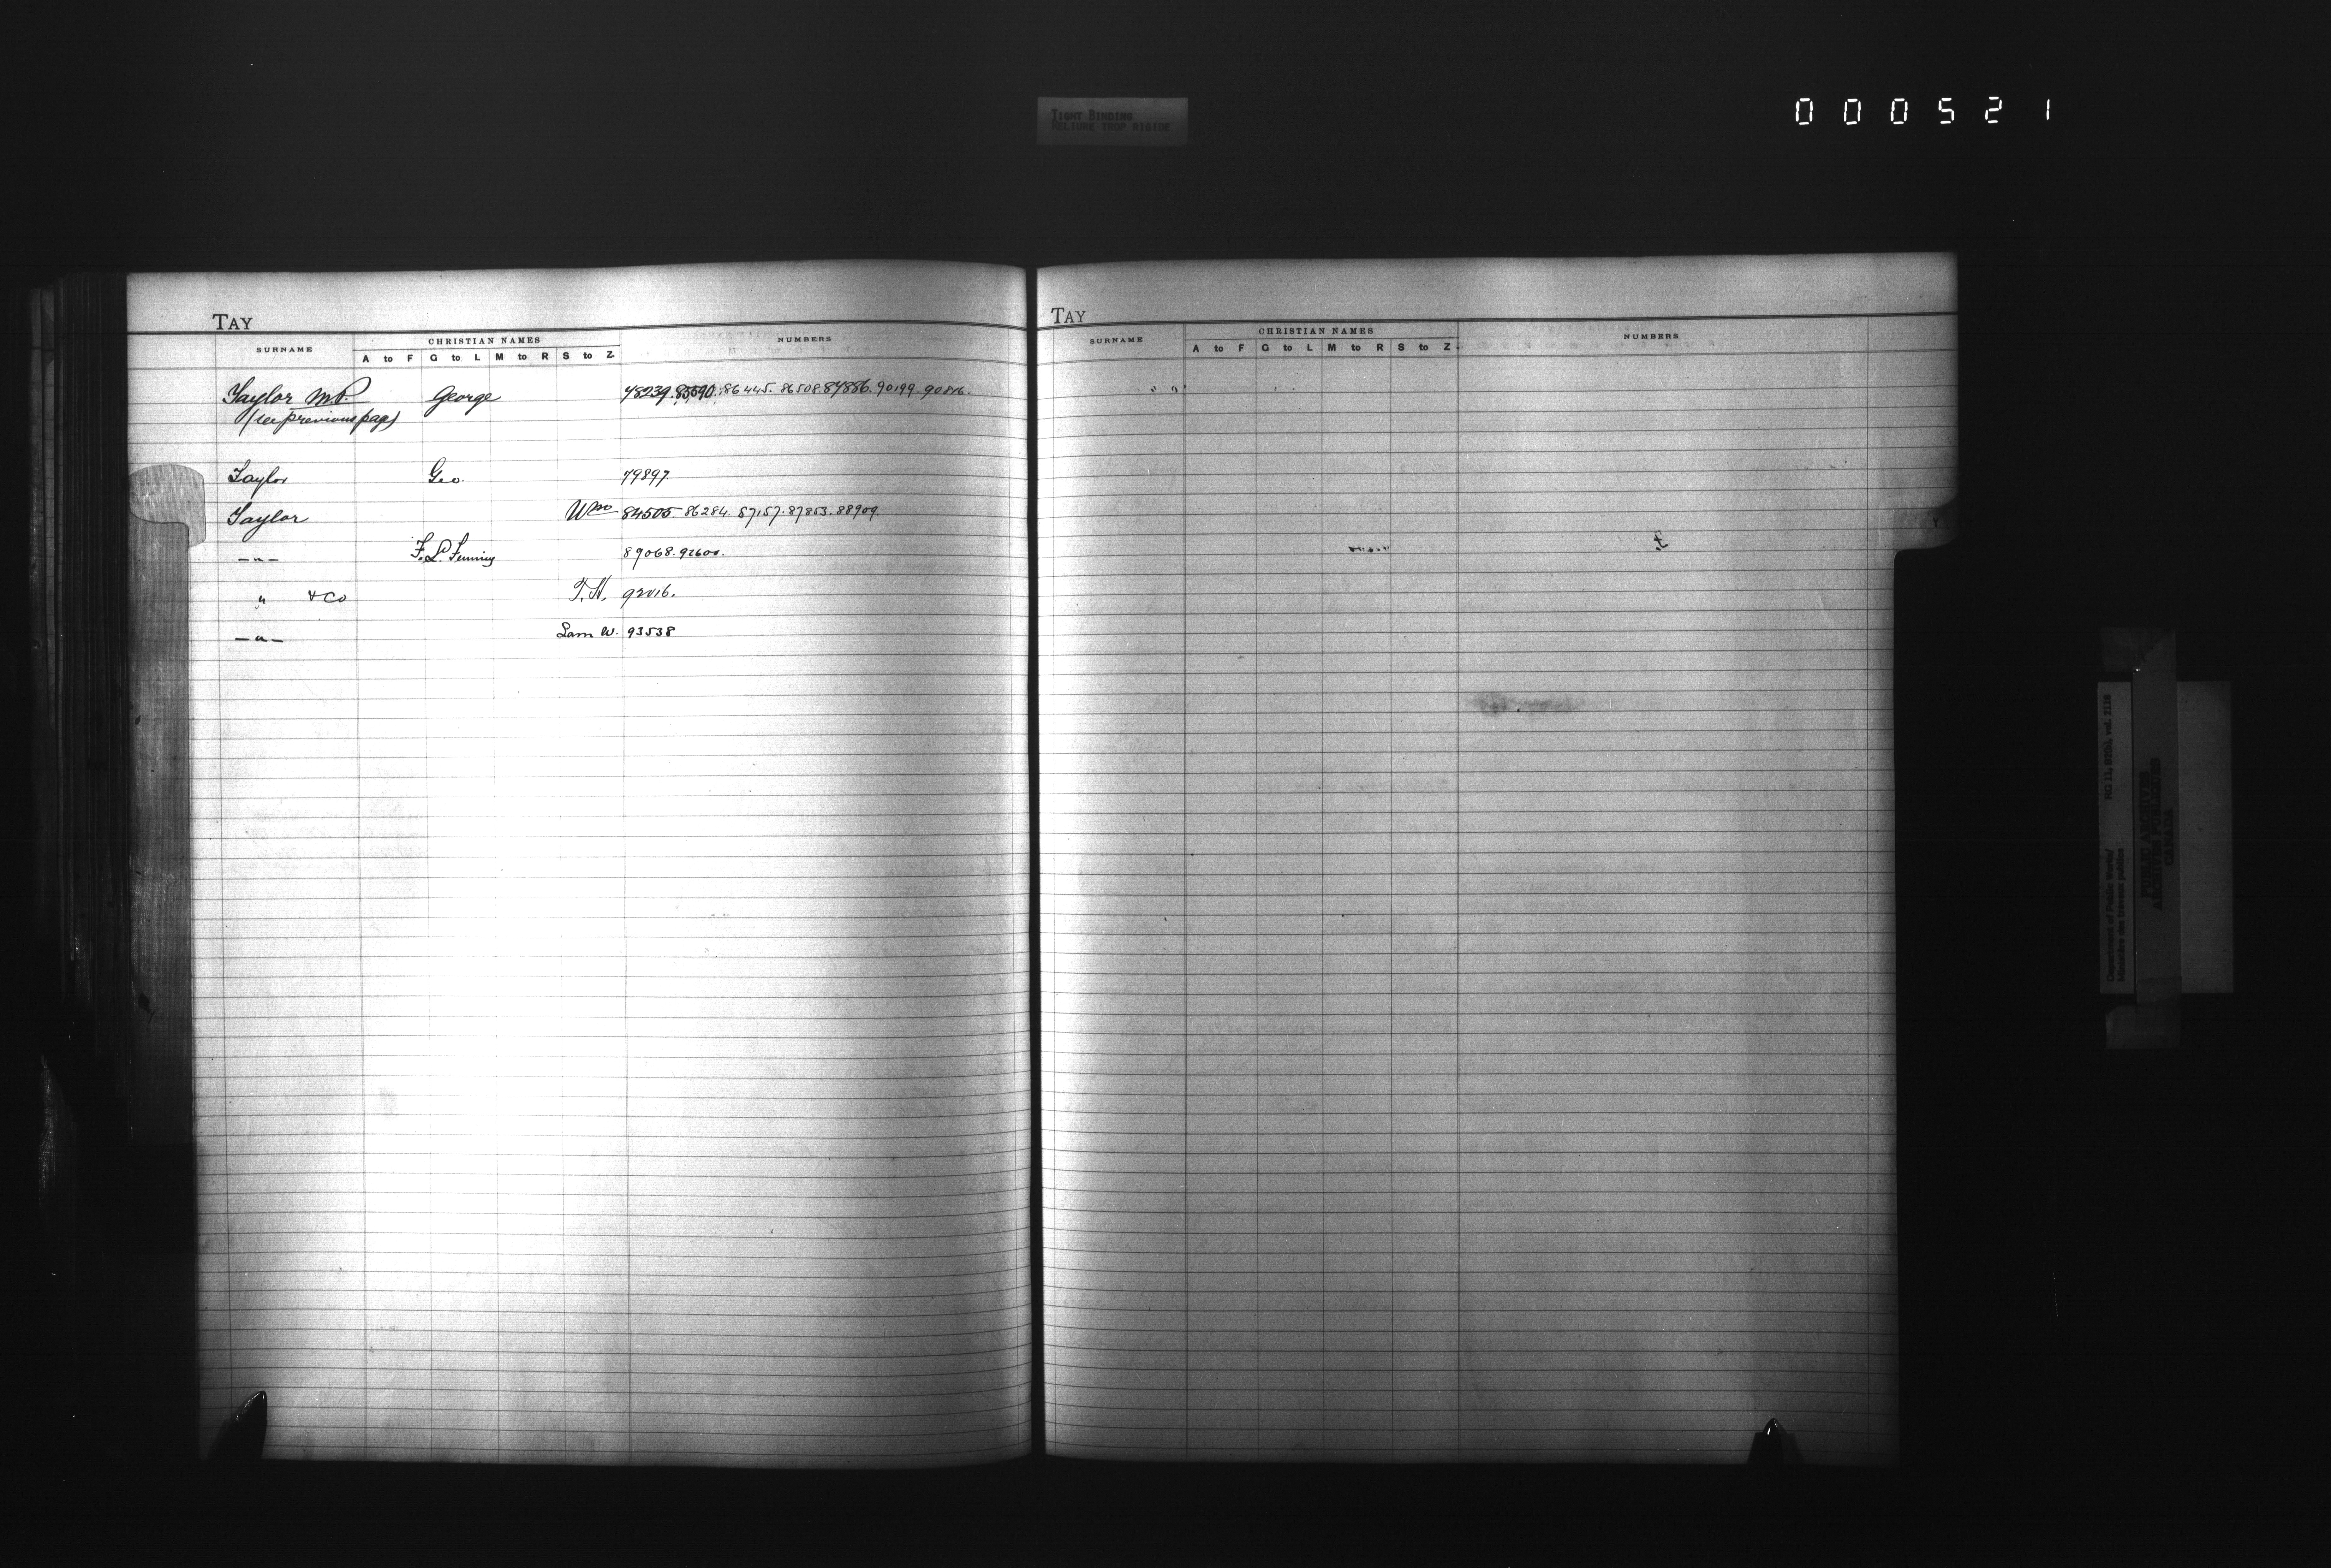 TIGHT BINDING
RELIURE TROP RIGIDE
000521
TAY
SURNAME CHRISTIAN NAMES NUMBERS
A to F G to L M to R S to Z
Taylor M.P. George 78239. 86445. 86508. 87886. 90199. 90816.
(see previous page)
Taylor Geo. 79897.
Taylor Wm 84505. 86284. 87157. 87853. 88909.
—"— 89068. 92600.
" & Co T.H. 92016.
—"— Sam W. 93538
TAY
SURNAME CHRISTIAN NAMES NUMBERS
A to F G to L M to R S to Z
Department of Public Works/ RG 11, B2(b), vol. 2118
Ministère des travaux publics
PUBLIC ARCHIVES
ARCHIVES PUBLIQUES
CANADA